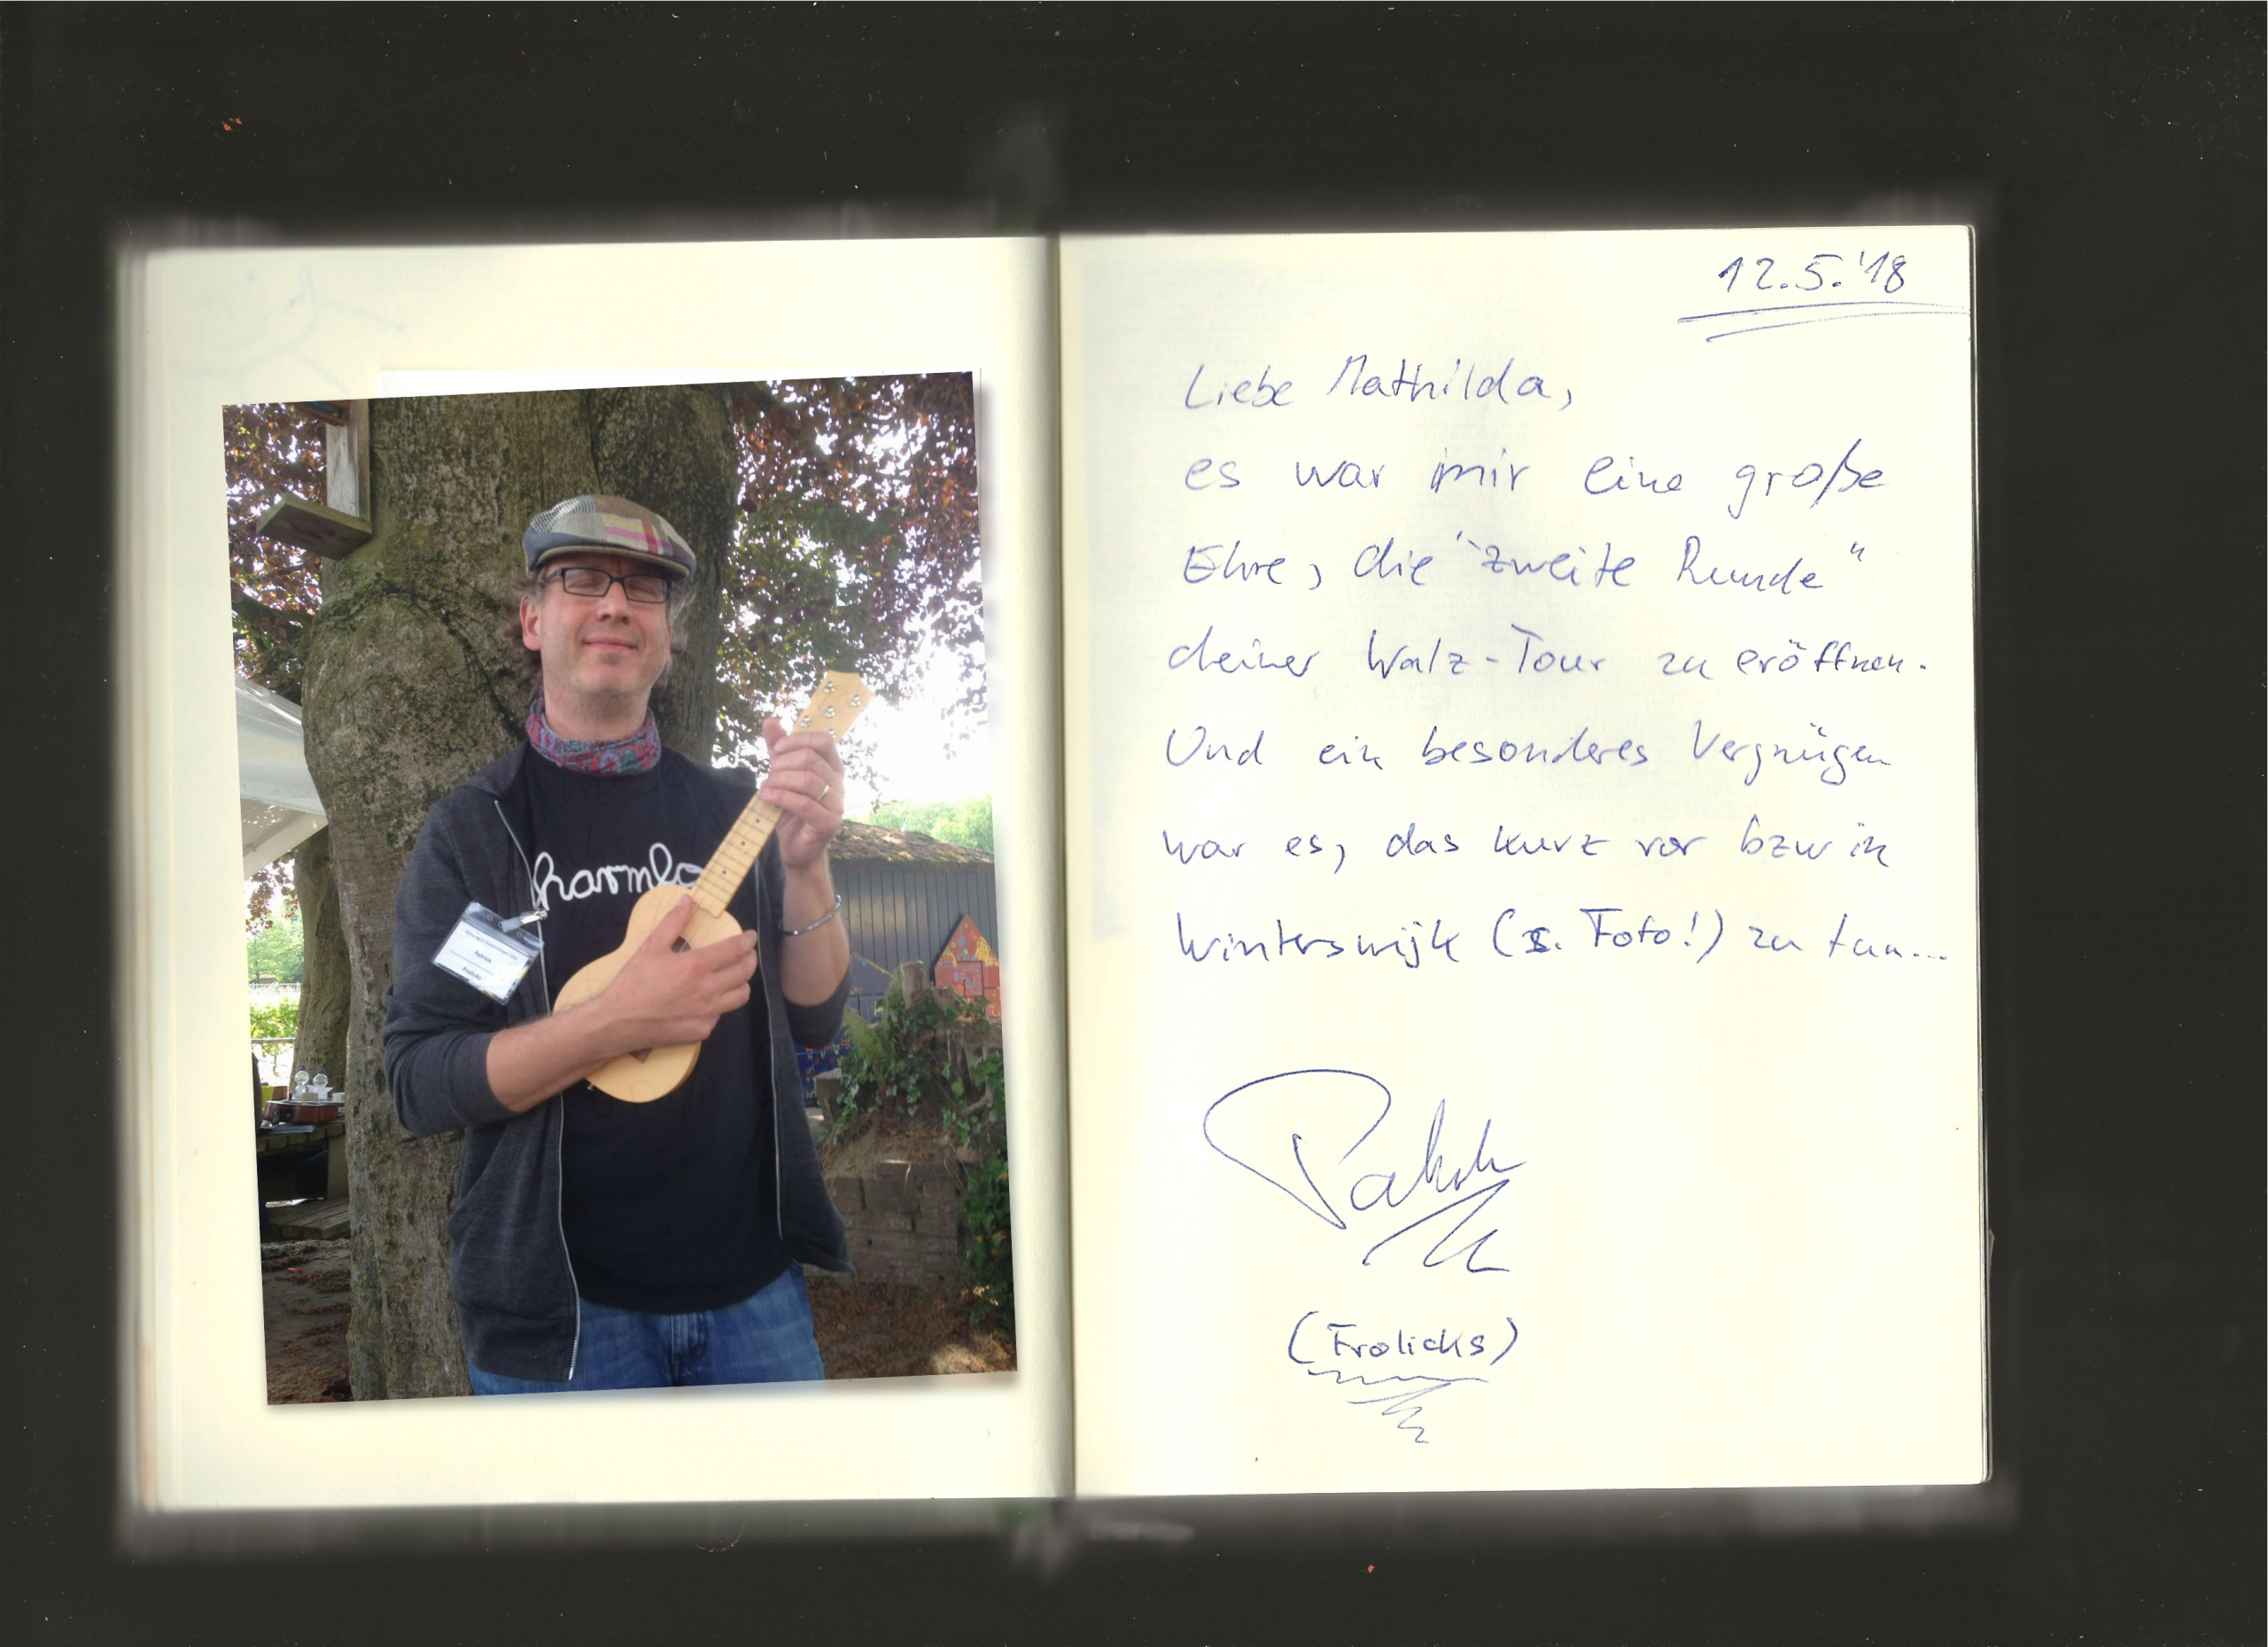 harmlo
Patrick
Frolicks
12.5.'18
Liebe Mathilda,
es war mir eine große
Ehre, die "zweite Runde"
deiner Walz-Tour zu eröffnen.
Und ein besonderes Vergnügen
war es, das kurz vor bzw in
Winterswijk (s. Foto!) zu tun...
Patrick
(Frolicks)